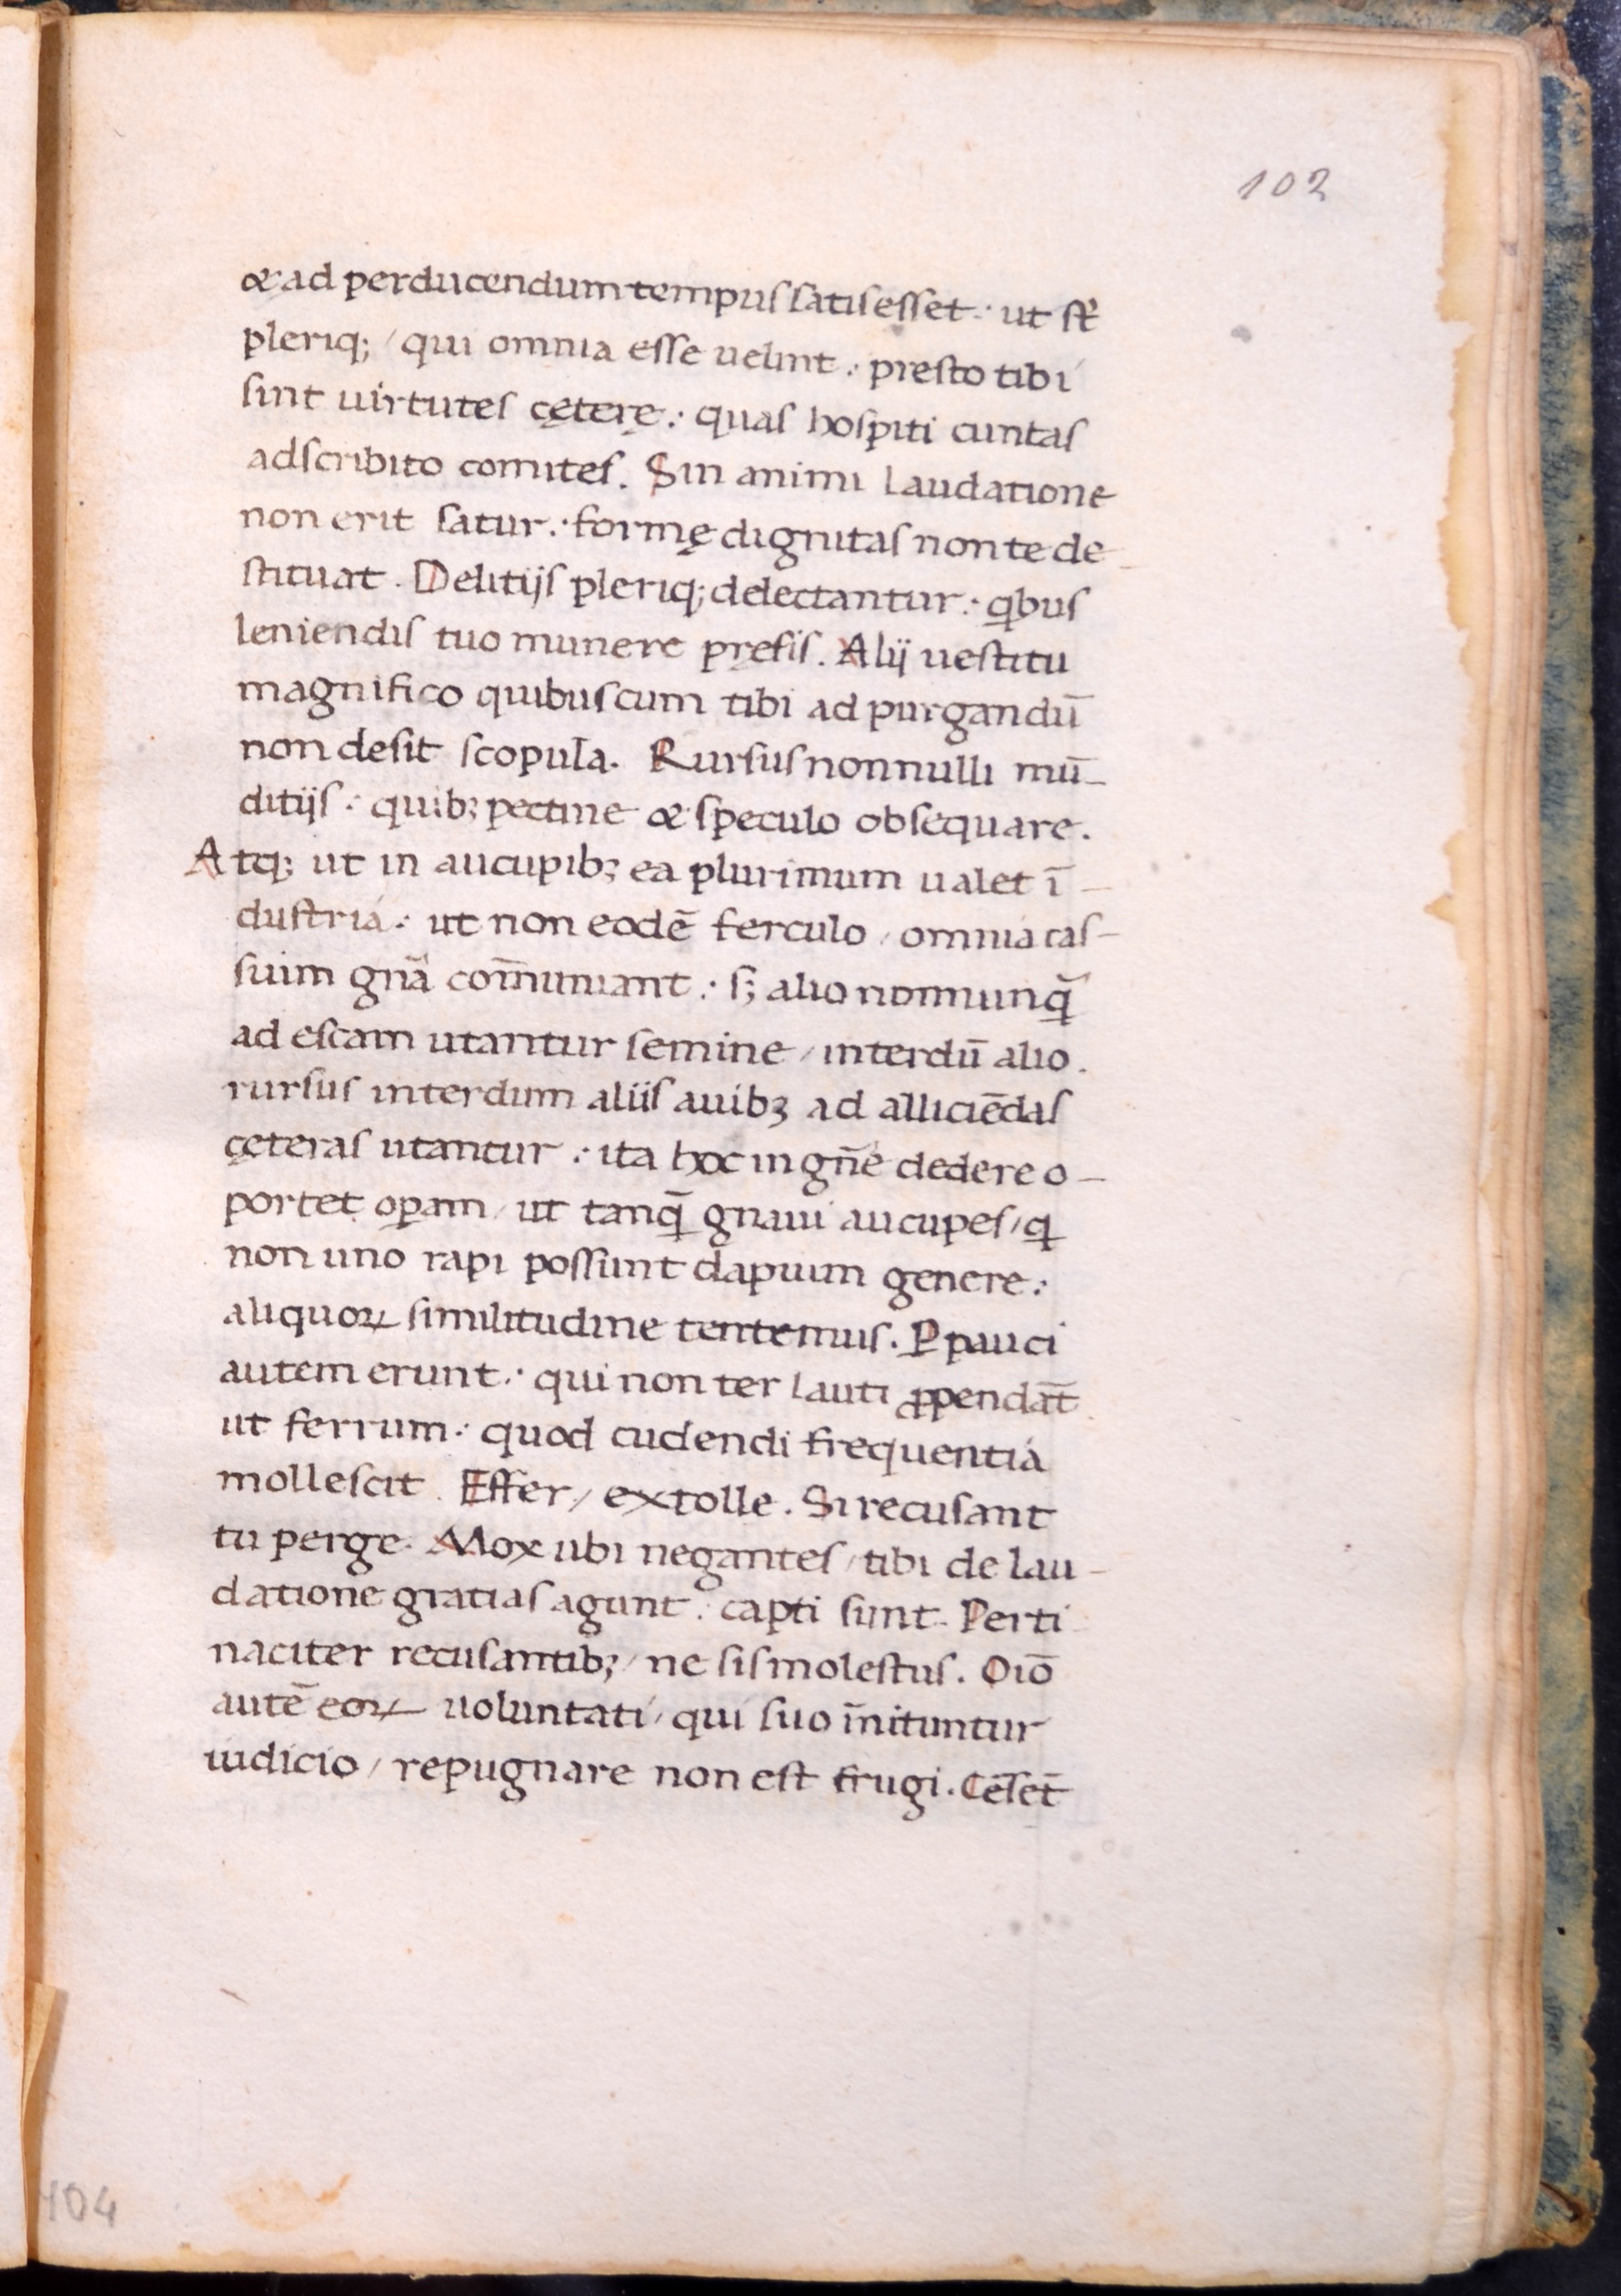 102
& ad perducendum tempus satis esset: ut st̄
pleriq; / qui omnia esse uelint: presto tibi
sint uirtutes cętere: quas hospiti cuntas
adscribito comites. Sin animi laudatione
non erit satur: formę dignitas non te de-
stituat. Delitijs pleriq; delectantur: qbus
leniendis tuo munere pręsis. Alij uestitu
magnifico quibuscum tibi ad purgandū
non desit scopula. Rursus nonnulli mū-
ditijs: quibꝫ pectine & speculo obsequare.
Atq; ut in aucupibꝫ ea plurimum ualet ī-
dustria: ut non eodē ferculo / omnia cas-
suim gn̄a com̄uniant: sꝫ alio nonnunq̄
ad escam utantur semine / interdū alio.
rursus interdum aliis auibꝫ ad alliciēdas
cęteras utantur: ita hoc in gn̄e dedere o-
portet oꝑam / ut tanq̄ gnaui aucupes / q
non uno rapi possunt dapuum genere:
aliquoꝝ similitudine tentemus. Ꝑpauci
autem erunt: qui non ter lauti ꝓpendāt
ut ferrum: quod cudendi frequentia
mollescit. Effer / extolle. Si recusant
tu perge. Mox ubi negantes / tibi de lau-
datione gratias agunt: capti sunt. Perti
naciter recusantibꝫ / ne sis molestus. Oiō
autē eoꝝ uoluntati / qui suo īnituntur
iudicio / repugnare non est frugi. Cēsēt
104